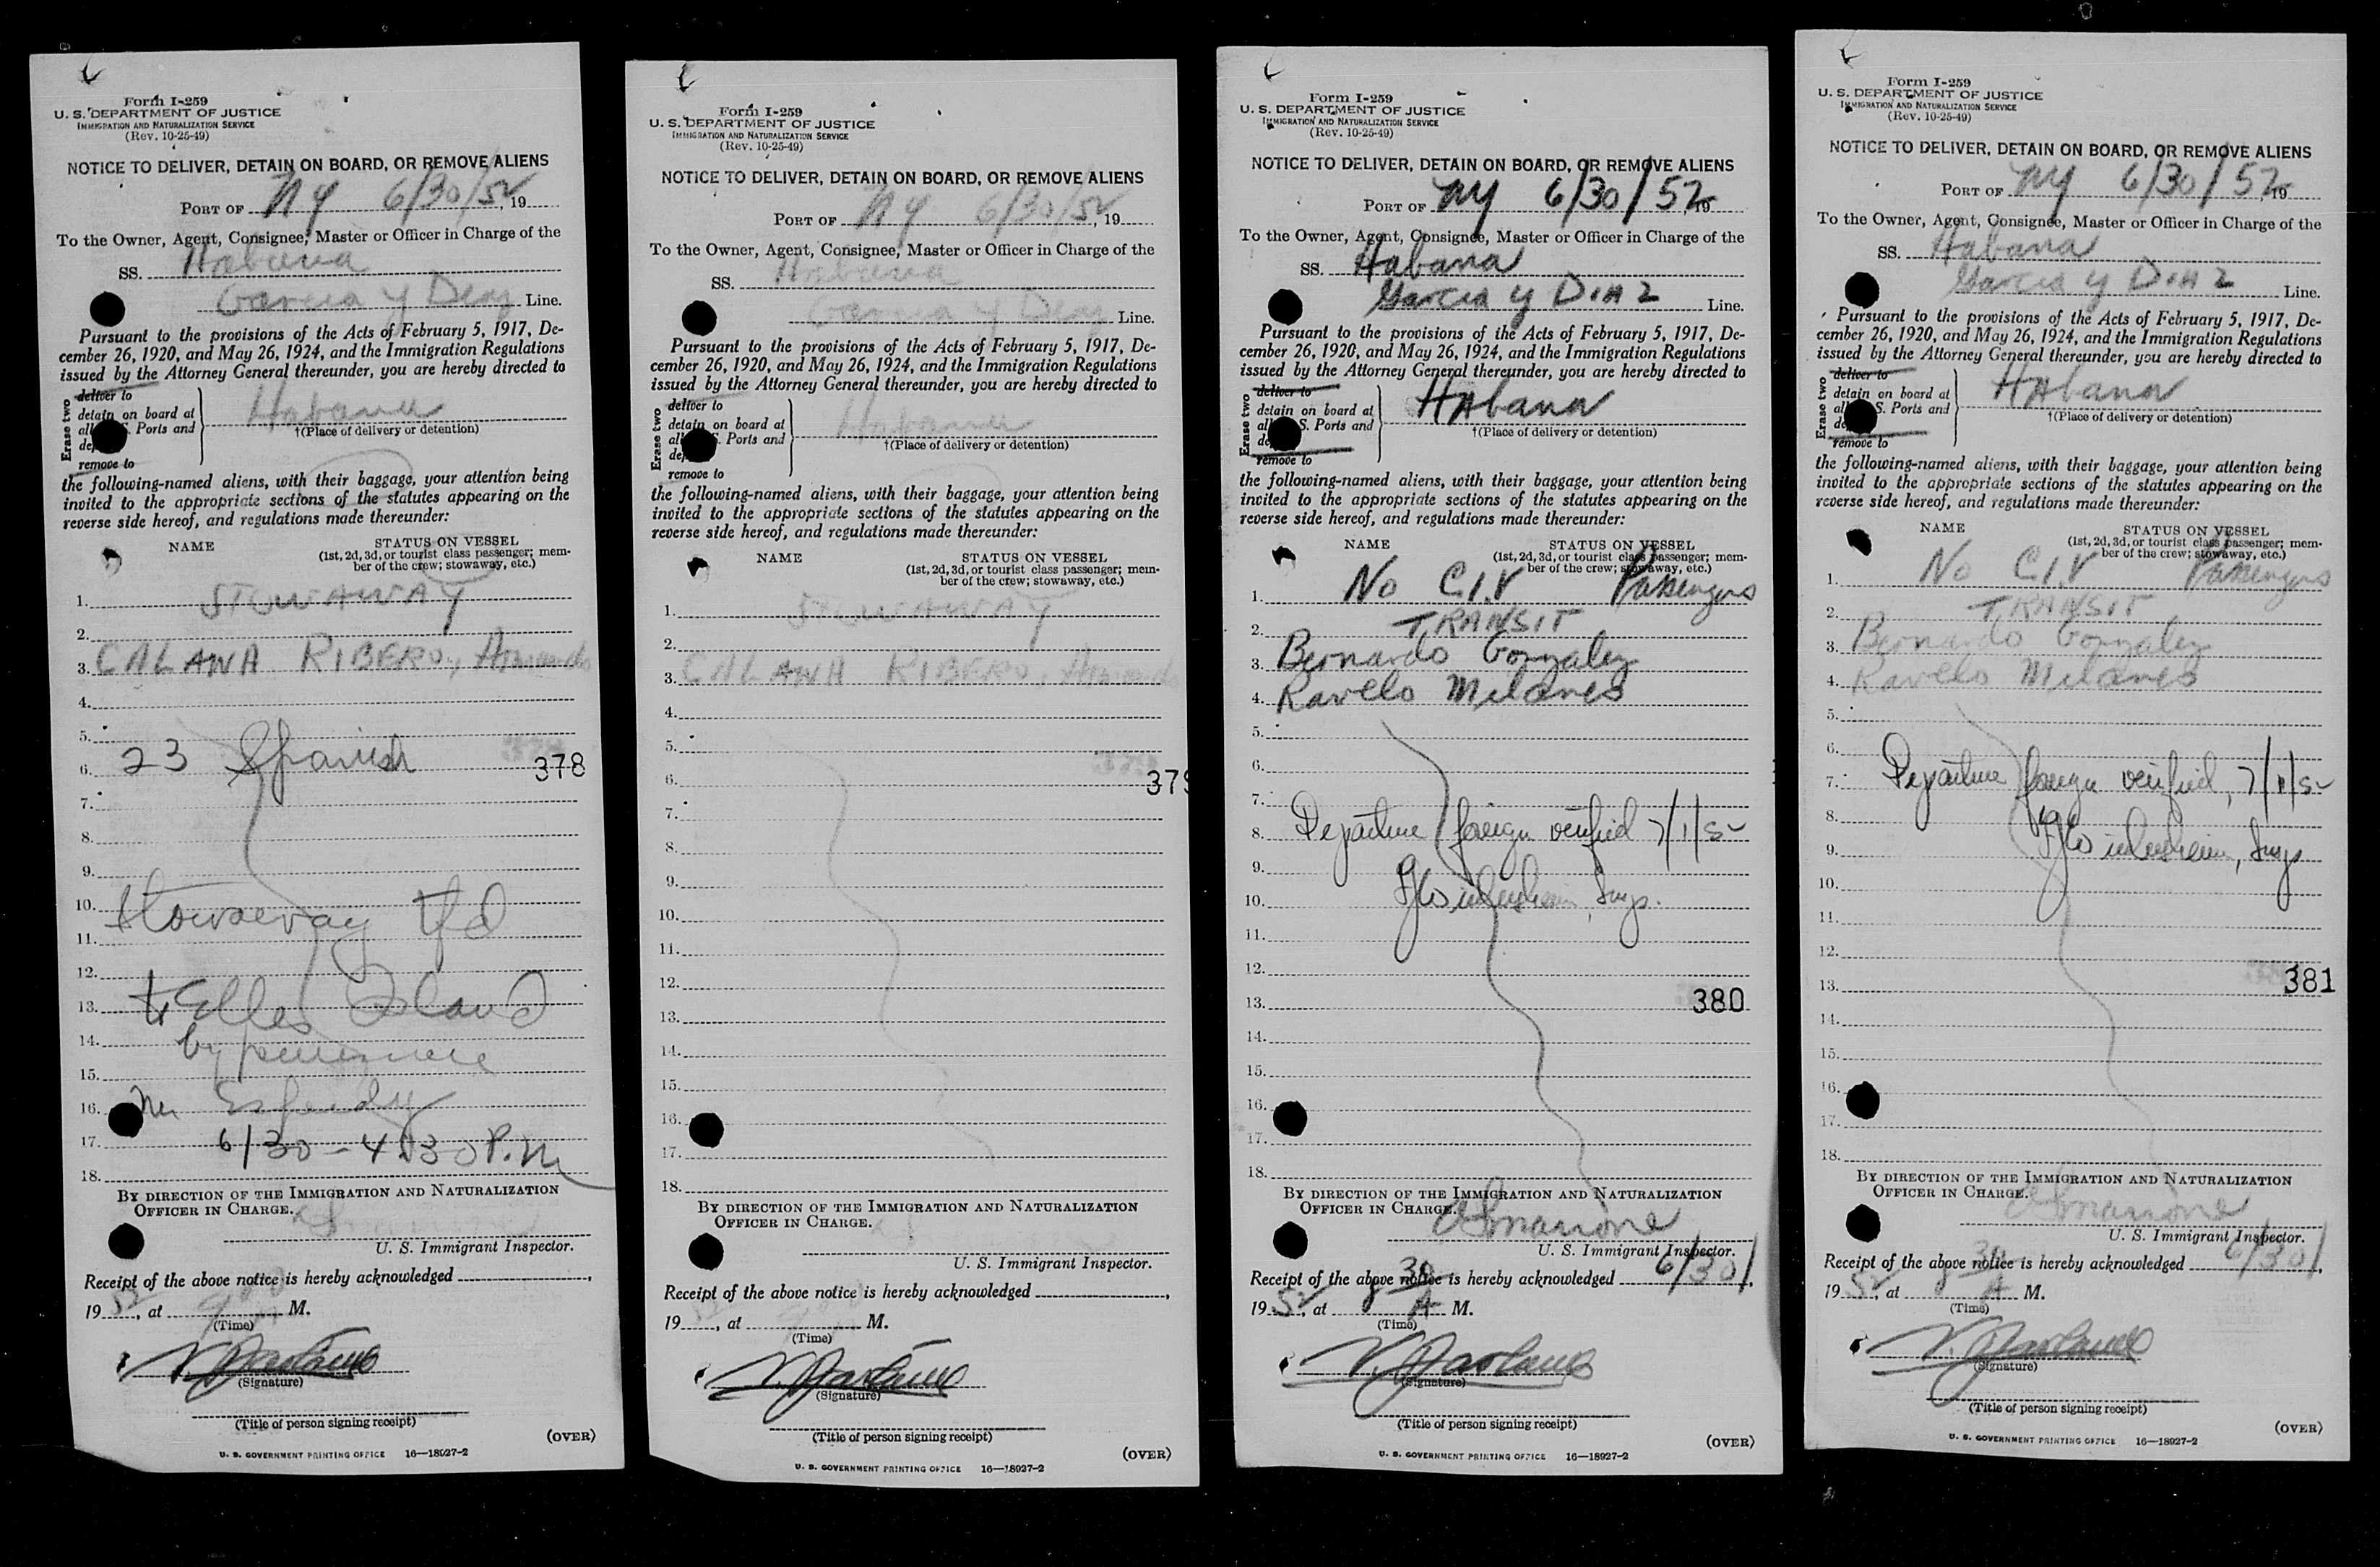 Form I-259
U. S. DEPARTMENT OF JUSTICE
IMMIGRATION AND NATURALIZATION SERVICE
(Rev. 10-25-49)
NOTICE TO DELIVER, DETAIN ON BOARD, OR REMOVE ALIENS
PORT OF NY 6/30/52, 19
To the Owner, Agent, Consignee, Master or Officer in Charge of the
SS. Habana
Garcia y Diaz Line.
Pursuant to the provisions of the Acts of February 5, 1917, De-
cember 26, 1920, and May 26, 1924, and the Immigration Regulations
issued by the Attorney General thereunder, you are hereby directed to
Erase two
deliver to
detain on board at
all S. Ports and
remove to
Habana
†(Place of delivery or detention)
the following-named aliens, with their baggage, your attention being
invited to the appropriate sections of the statutes appearing on the
reverse side hereof, and regulations made thereunder:
NAME STATUS ON VESSEL
(1st, 2d, 3d, or tourist class passenger; mem-
ber of the crew; stowaway, etc.)
1. STOWAWAY
2.
3. CALANA RIBERO, Armando
4.
5.
6. 23 Spanish 378
7.
8.
9.
10. Stowaway tfd
11.
12.
13. to Ellis Island
14. by
15.
16.
17. 6/30 - 4:30 P.M
18.
BY DIRECTION OF THE IMMIGRATION AND NATURALIZATION
OFFICER IN CHARGE.
U. S. Immigrant Inspector.
Receipt of the above notice is hereby acknowledged
1952, at M.
(Time)
(Signature)
(Title of person signing receipt)
(OVER)
U. S. GOVERNMENT PRINTING OFFICE 16—18927-2
Form I-259
U. S. DEPARTMENT OF JUSTICE
IMMIGRATION AND NATURALIZATION SERVICE
(Rev. 10-25-49)
NOTICE TO DELIVER, DETAIN ON BOARD, OR REMOVE ALIENS
PORT OF NY 6/30/52, 19
To the Owner, Agent, Consignee, Master or Officer in Charge of the
SS. Habana
Garcia y Diaz Line.
Pursuant to the provisions of the Acts of February 5, 1917, De-
cember 26, 1920, and May 26, 1924, and the Immigration Regulations
issued by the Attorney General thereunder, you are hereby directed to
Erase two
deliver to
detain on board at
all S. Ports and
remove to
Habana
†(Place of delivery or detention)
the following-named aliens, with their baggage, your attention being
invited to the appropriate sections of the statutes appearing on the
reverse side hereof, and regulations made thereunder:
NAME STATUS ON VESSEL
(1st, 2d, 3d, or tourist class passenger; mem-
ber of the crew; stowaway, etc.)
1. STOWAWAY
2.
3. CALANA RIBERO, Armando
4.
5.
6. 379
7.
8.
9.
10.
11.
12.
13.
14.
15.
16.
17.
18.
BY DIRECTION OF THE IMMIGRATION AND NATURALIZATION
OFFICER IN CHARGE.
U. S. Immigrant Inspector.
Receipt of the above notice is hereby acknowledged
19, at M.
(Time)
(Signature)
(Title of person signing receipt)
(OVER)
U. S. GOVERNMENT PRINTING OFFICE 16—18927-2
Form I-259
U. S. DEPARTMENT OF JUSTICE
IMMIGRATION AND NATURALIZATION SERVICE
(Rev. 10-25-49)
NOTICE TO DELIVER, DETAIN ON BOARD, OR REMOVE ALIENS
PORT OF NY 6/30/52 19
To the Owner, Agent, Consignee, Master or Officer in Charge of the
SS. Habana
Garcia y DIAZ Line.
Pursuant to the provisions of the Acts of February 5, 1917, De-
cember 26, 1920, and May 26, 1924, and the Immigration Regulations
issued by the Attorney General thereunder, you are hereby directed to
Erase two
deliver to
detain on board at
all S. Ports and
remove to
HAbana
†(Place of delivery or detention)
the following-named aliens, with their baggage, your attention being
invited to the appropriate sections of the statutes appearing on the
reverse side hereof, and regulations made thereunder:
NAME STATUS ON VESSEL
(1st, 2d, 3d, or tourist class passenger; mem-
ber of the crew; stowaway, etc.)
1. No C.I.V Passengers
2. TRANSIT
3. Bernardo Gonzalez
4. Ravelo Milanes
5.
6.
7.
8. Departure foreign verified 7/1/52
9.
10. Insp.
11.
12.
13. 380
14.
15.
16.
17.
18.
BY DIRECTION OF THE IMMIGRATION AND NATURALIZATION
OFFICER IN CHARGE.
U. S. Immigrant Inspector.
Receipt of the above notice is hereby acknowledged 6/30/,
1952, at 30 A M.
(Time)
(Signature)
(Title of person signing receipt)
(OVER)
U. S. GOVERNMENT PRINTING OFFICE 16—18927-2
Form I-259
U. S. DEPARTMENT OF JUSTICE
IMMIGRATION AND NATURALIZATION SERVICE
(Rev. 10-25-49)
NOTICE TO DELIVER, DETAIN ON BOARD, OR REMOVE ALIENS
PORT OF NY 6/30/52, 19
To the Owner, Agent, Consignee, Master or Officer in Charge of the
SS. Habana
Garcia y DIAZ Line.
Pursuant to the provisions of the Acts of February 5, 1917, De-
cember 26, 1920, and May 26, 1924, and the Immigration Regulations
issued by the Attorney General thereunder, you are hereby directed to
Erase two
deliver to
detain on board at
all S. Ports and
remove to
HAbana
†(Place of delivery or detention)
the following-named aliens, with their baggage, your attention being
invited to the appropriate sections of the statutes appearing on the
reverse side hereof, and regulations made thereunder:
NAME STATUS ON VESSEL
(1st, 2d, 3d, or tourist class passenger; mem-
ber of the crew; stowaway, etc.)
1. No C.I.V Passengers
2. TRANSIT
3. Bernardo Gonzalez
4. Ravelo Milanes
5.
6.
7. Departure foreign verified, 7/1/52
8.
9. Insp
10.
11.
12.
13. 381
14.
15.
16.
17.
18.
BY DIRECTION OF THE IMMIGRATION AND NATURALIZATION
OFFICER IN CHARGE.
U. S. Immigrant Inspector.
Receipt of the above notice is hereby acknowledged 6/30/,
1952, at 30 A M.
(Time)
(Signature)
(Title of person signing receipt)
(OVER)
U. S. GOVERNMENT PRINTING OFFICE 16—18927-2